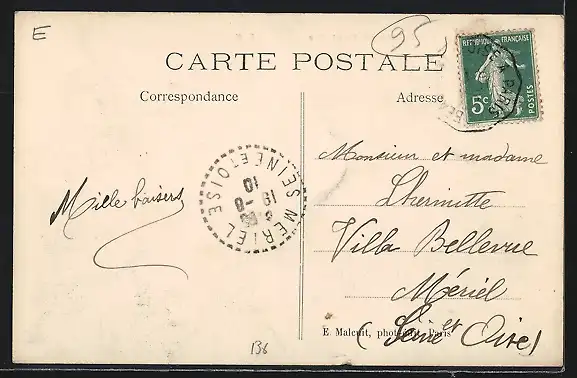 E
95
CARTE POSTALE
Correspondance
Adresse
REPUBLIQUE FRANÇAISE
5c
POSTES
A PARIS
Mille baisers
MERIEL
SEINE ET OISE
19 -8
10
Monsieur et madame
Lhermitte
Villa Bellevue
Mériel
(Seine et Oise)
E. Malcuit, phot-édit. Paris
136